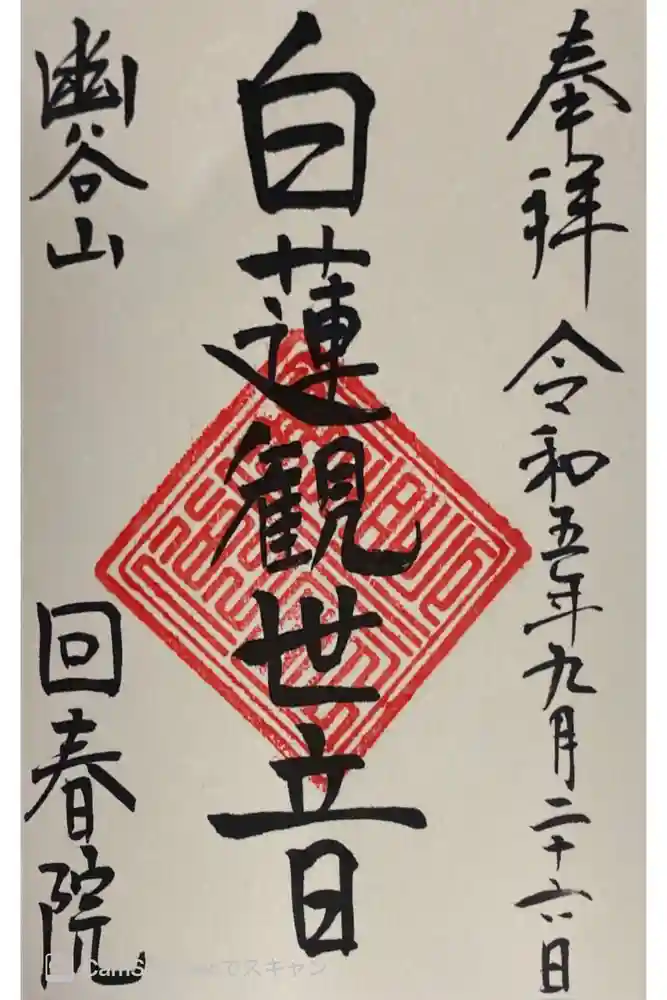 奉拝 令和五年九月二十六日
白蓮観世音
幽谷山 回春院
CamScannerでスキャン